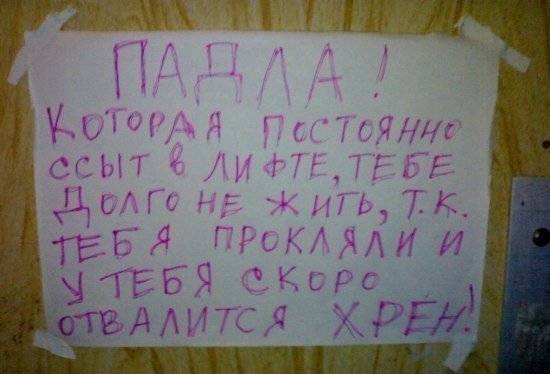 ПАДЛА!
КОТОРАЯ ПОСТОЯННО
ССЫТ В ЛИФТЕ, ТЕБЕ
ДОЛГО НЕ ЖИТЬ, Т.К.
ТЕБЯ ПРОКЛЯЛИ И
У ТЕБЯ СКОРО
ОТВАЛИТСЯ ХРЕН!